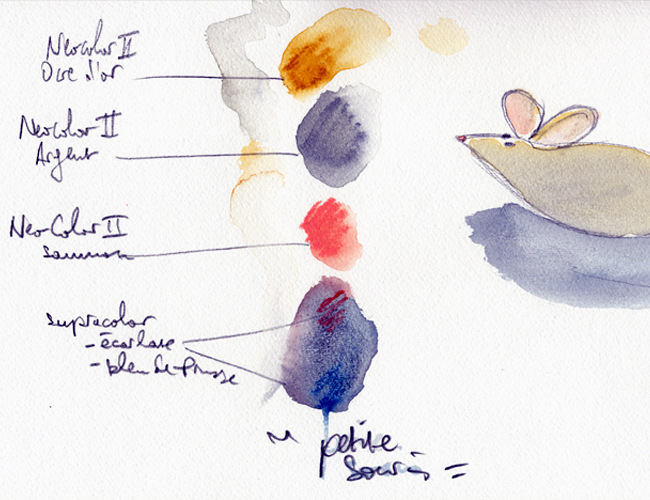 Neocolor II
Ocre d'or
Neocolor II
Argent
Neo Color II
saumon
supracolor
- écarlate
- bleu de Prusse
~ petite
Souris =